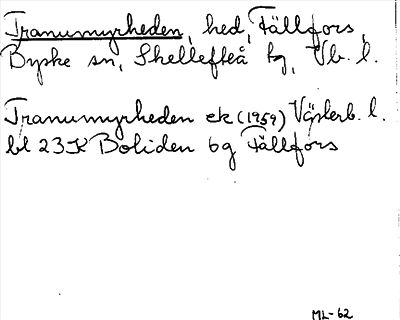 Tranumyrheden, hed, Fällfors,
Byske sn, Skellefteå tg, Vb. l.
Tranumyrheden ek (1959) Västerb. l.
bl 23K Boliden 6g Fällfors
ML-62